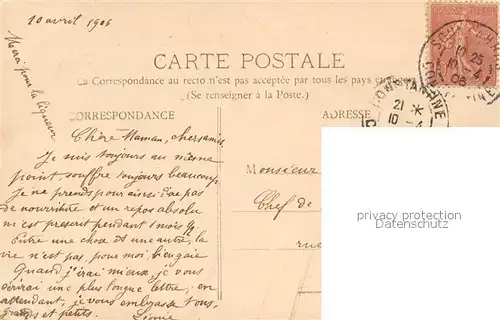 10 avril 1906
Merci pour la liqueur
CARTE POSTALE
La Correspondance au recto n'est pas acceptée par tous les pays
(Se renseigner à la Poste.)
CORRESPONDANCE
ADRESSE
Chère Maman, chers amis,
Je suis toujours au même
point, souffre toujours beaucoup.
Je ne prends pour ainsi dire pas
de nourriture et un repos absolu
m'est prescrit pendant 1 mois ½.
Entre une chose et une autre, la
vie n'est pas, pour moi, bien gaie
Quand j'irai mieux, je vous
écrirai une plus longue lettre; en
attendant, je vous embrasse tous,
grands et petits.
Léonie
Monsieur
Chef de
rue
CONSTANTINE
21 *
10 -4
10 25
06
privacy protection
Datenschutz